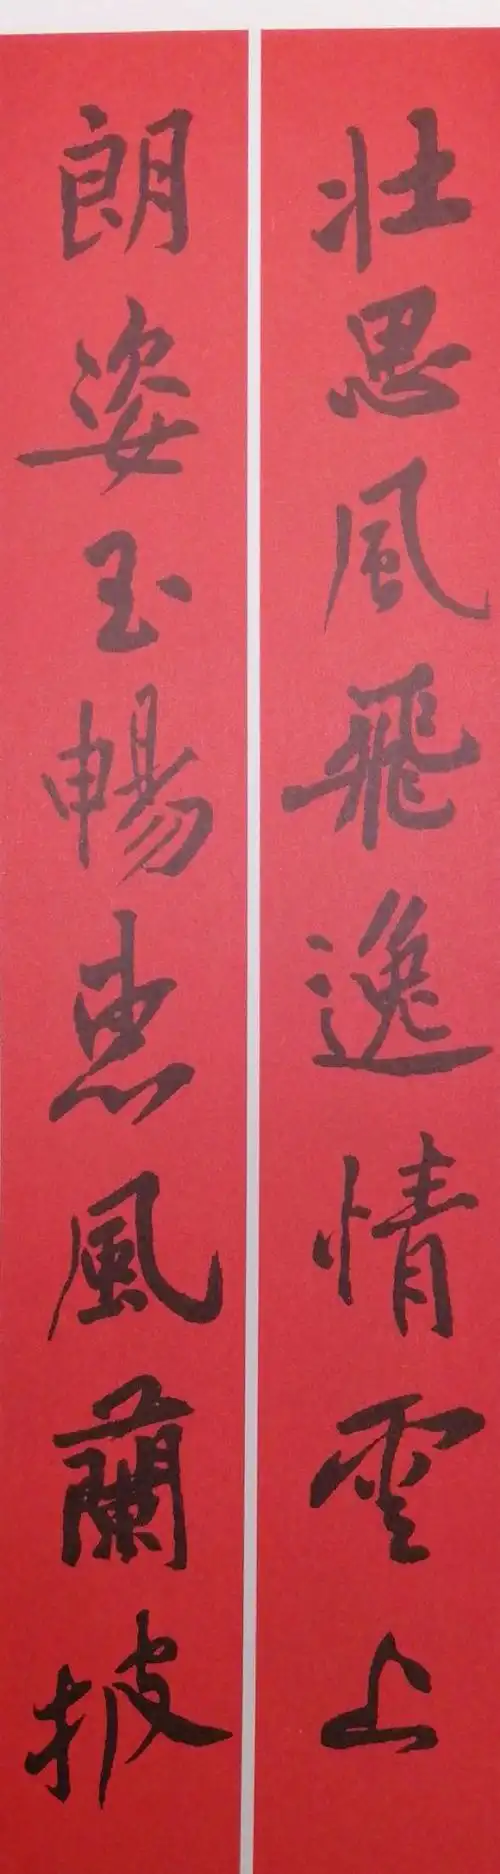 壯思風飛逸情雲上
朗姿玉暢惠風蘭披